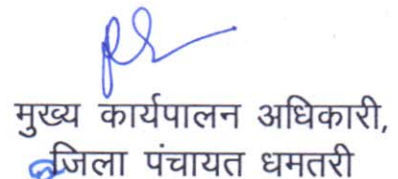 मुख्य कार्यपालन अधिकारी,
जिला पंचायत धमतरी